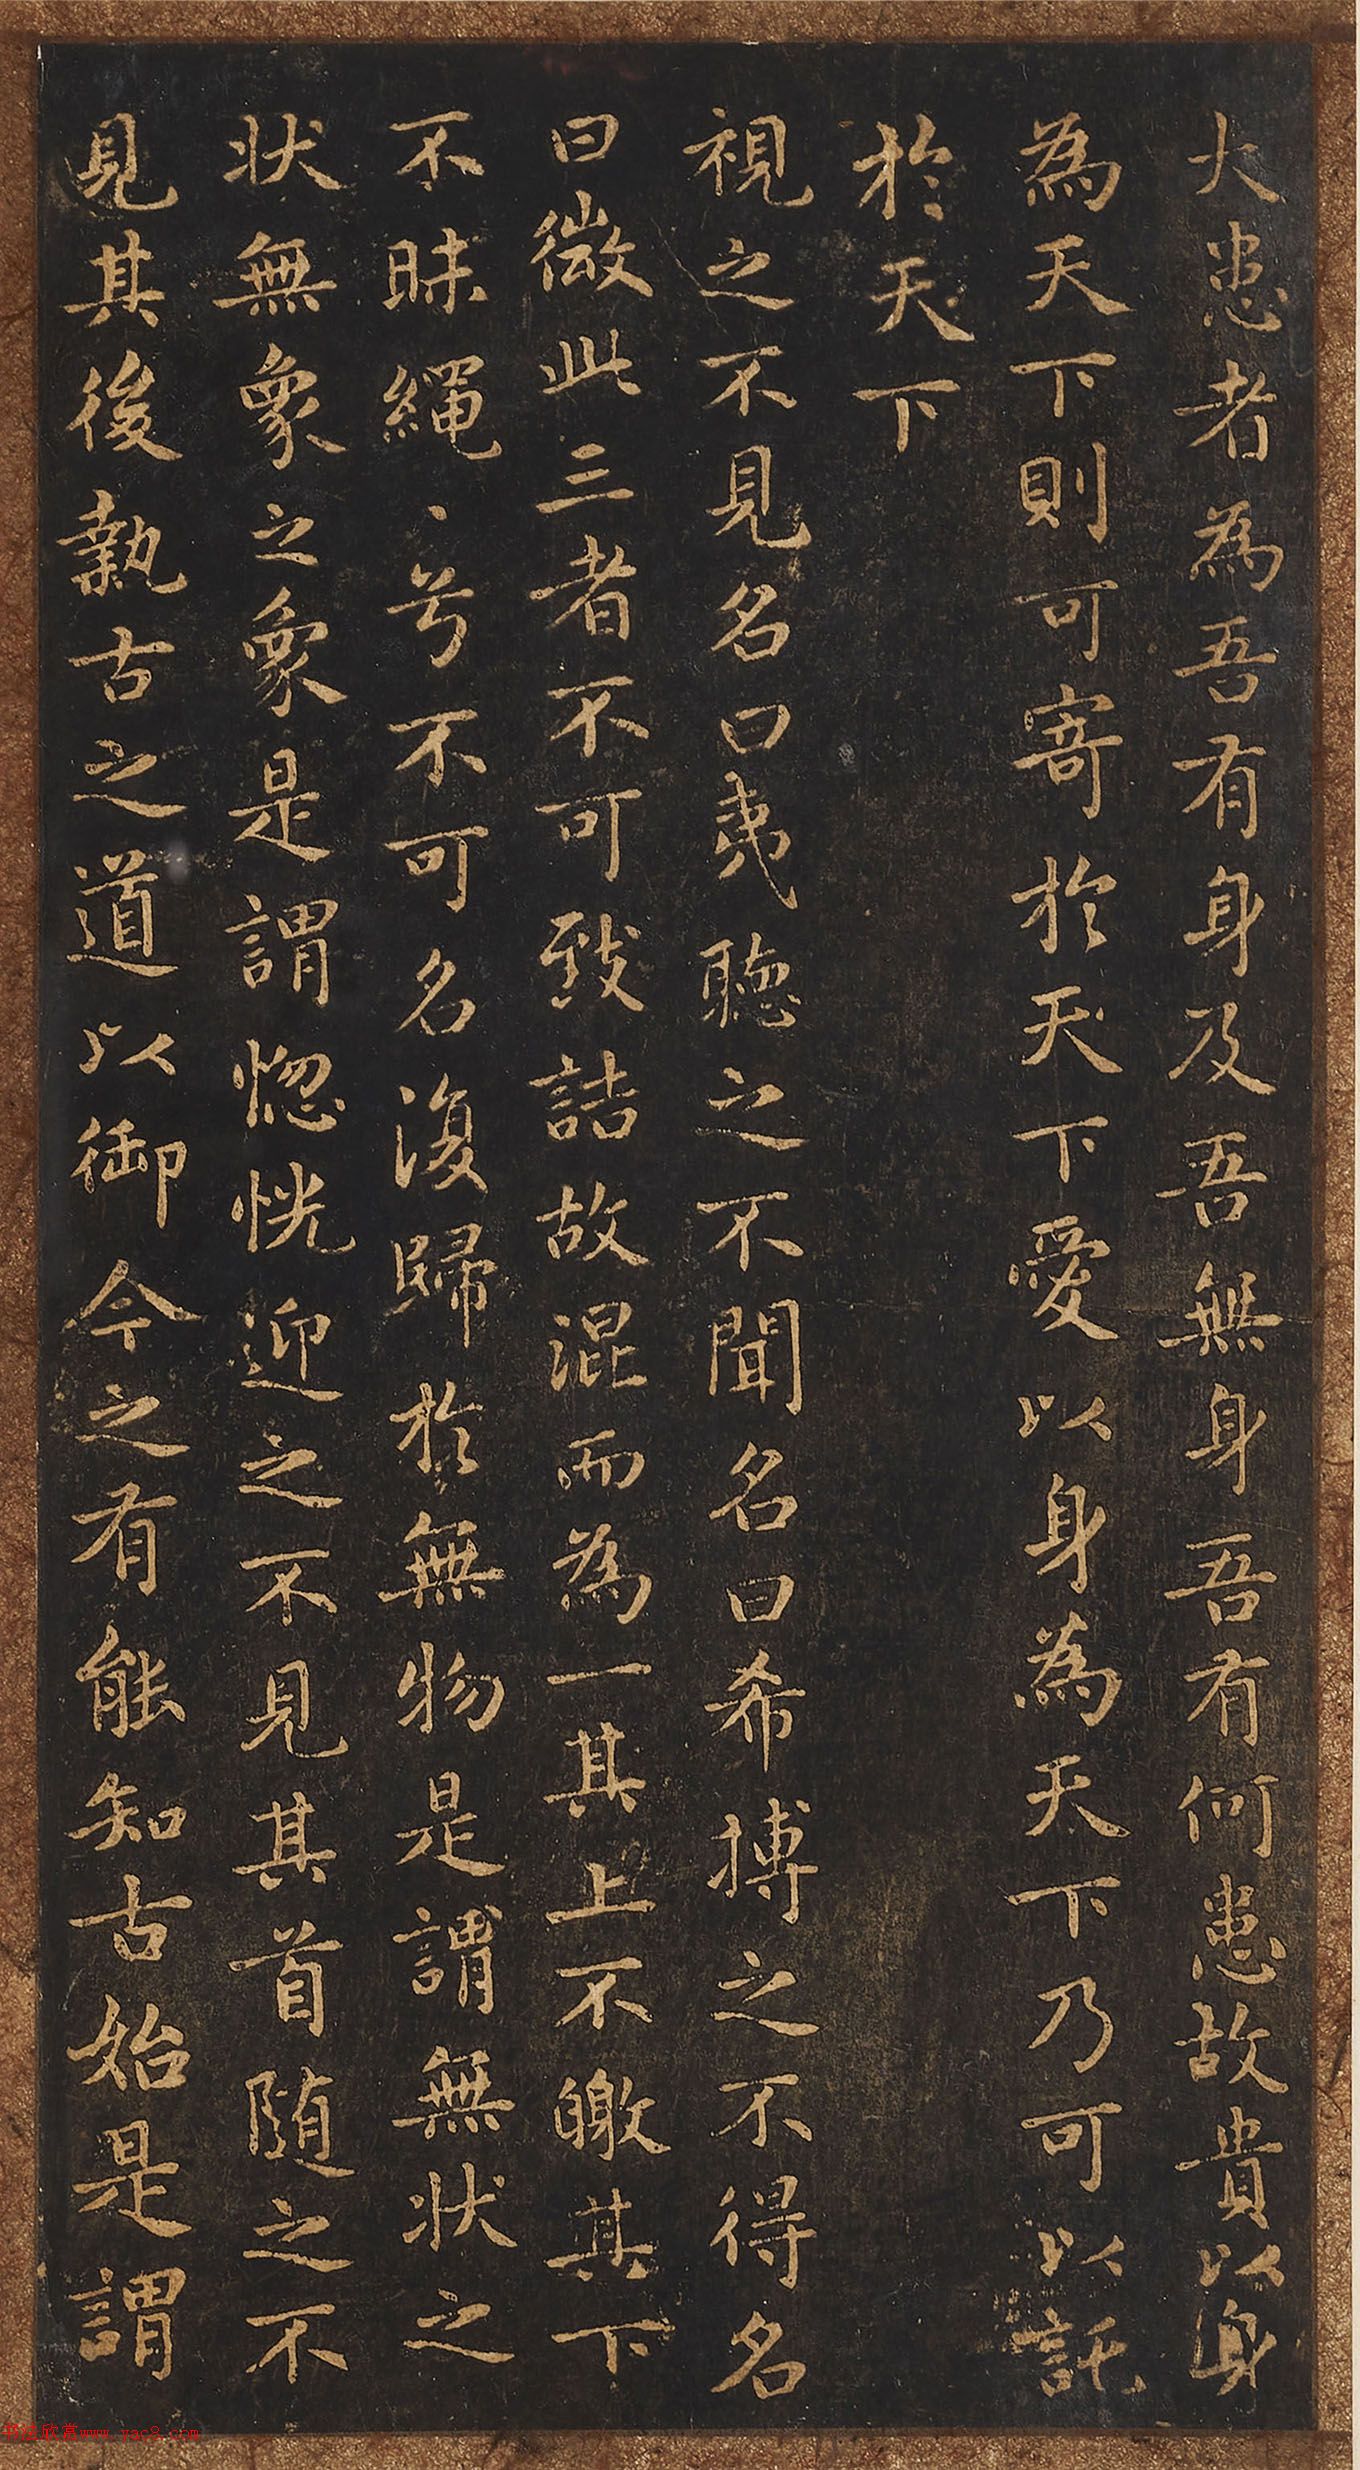 大患者為吾有身及吾無身吾有何患故貴以身
為天下則可寄於天下愛以身為天下乃可以託
於天下
視之不見名曰夷聽之不聞名曰希搏之不得名
曰微此三者不可致詰故混而為一其上不皦其下
不昧繩〻兮不可名復歸於無物是謂無状之
状無象之象是謂惚恍迎之不見其首随之不
見其後執古之道以御今之有能知古始是謂
书法欣赏www.yac8.com